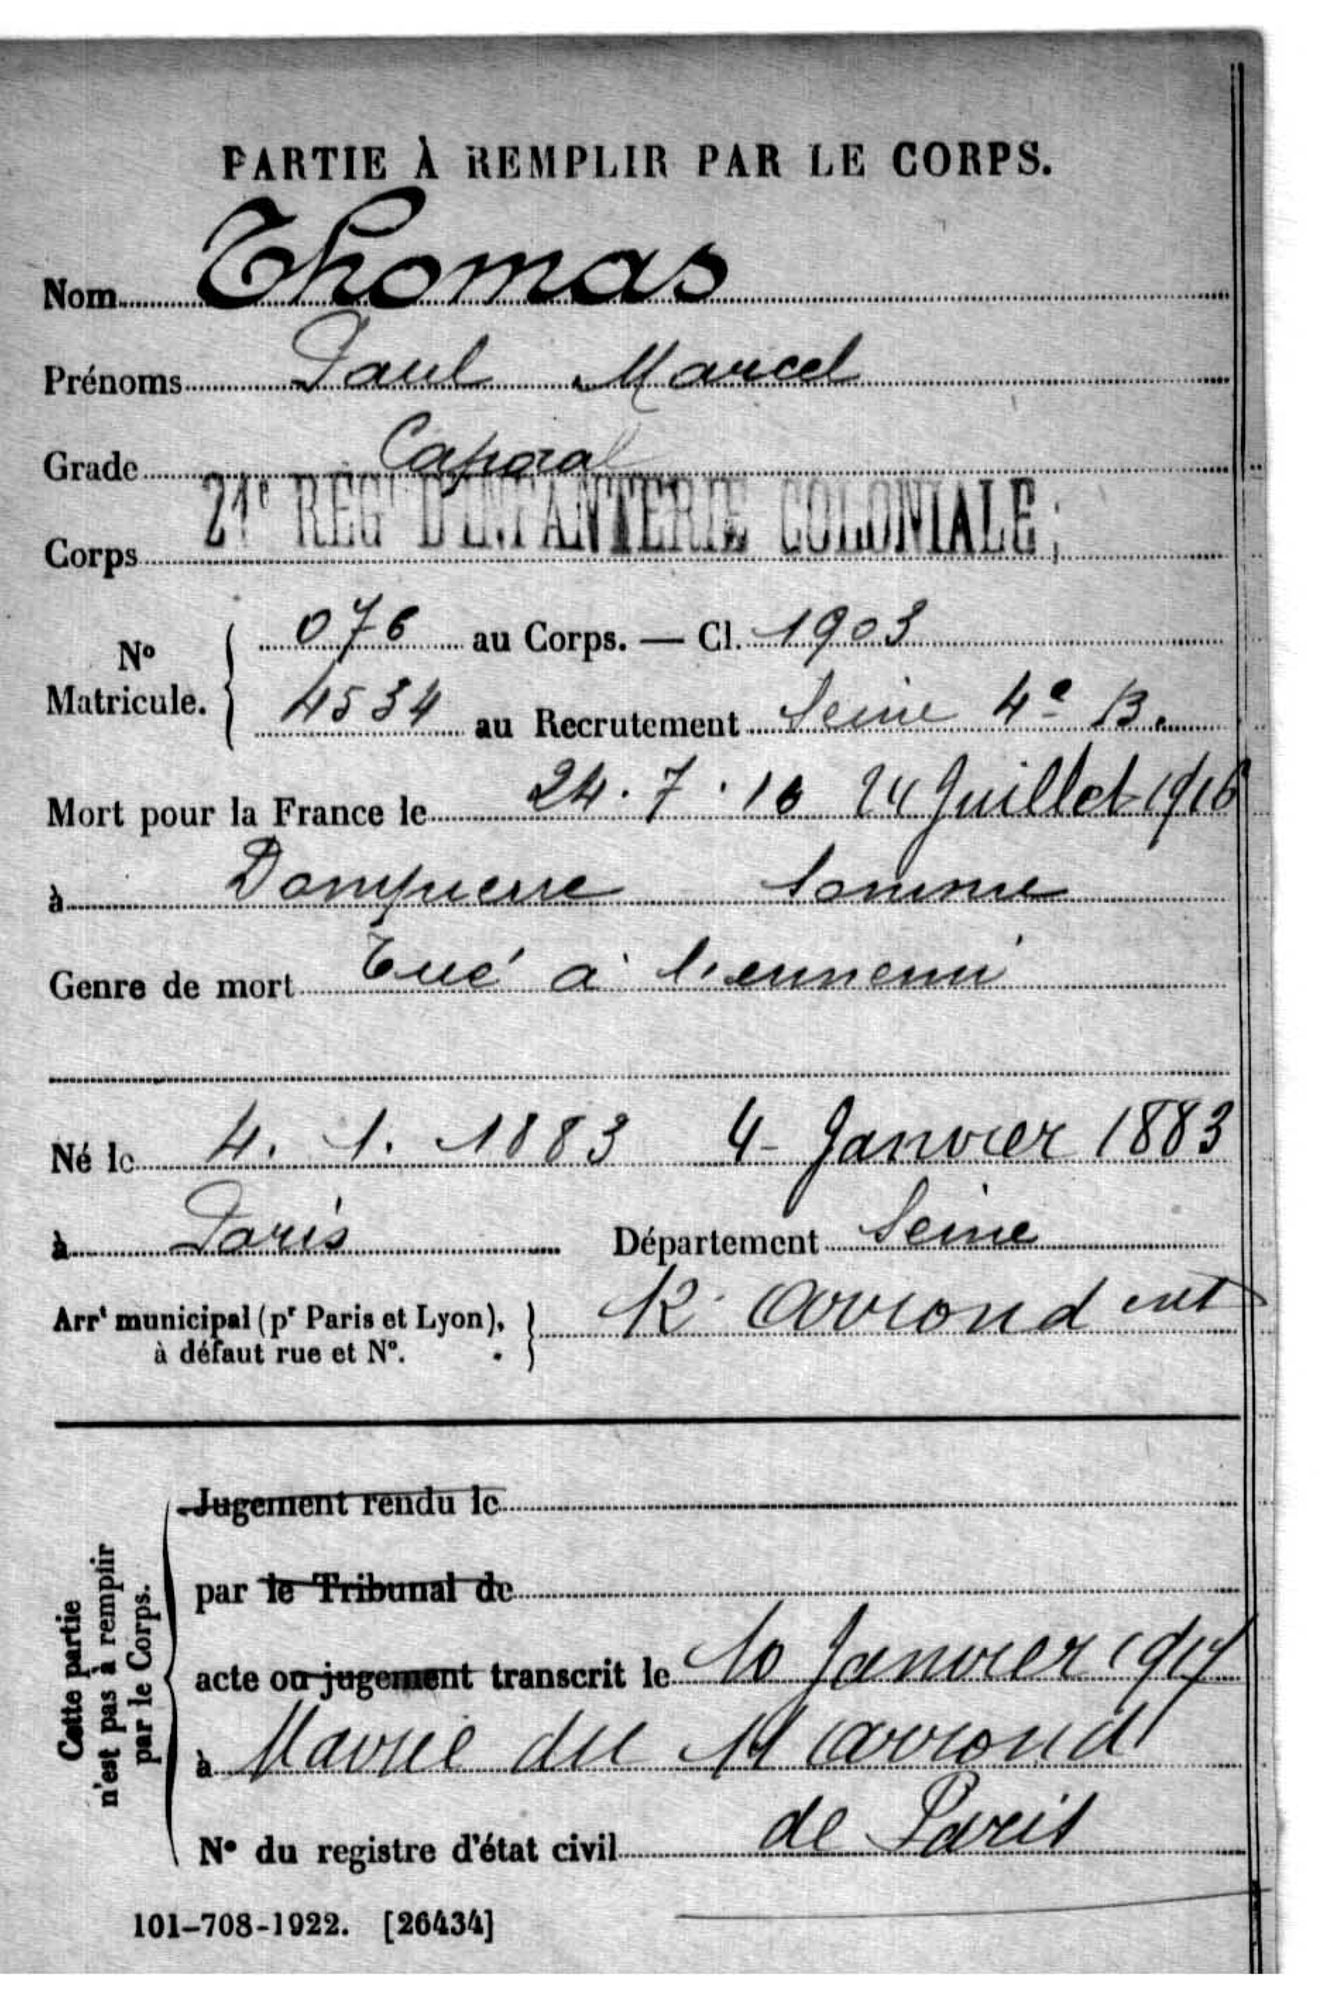 PARTIE À REMPLIR PAR LE CORPS.
Nom Thomas
Prénoms Paul Marcel
Grade Caporal
Corps 21e REGt D'INFANTERIE COLONIALE;
No Matricule. { 076 au Corps. — Cl. 1903
4534 au Recrutement Seine 4e B.
Mort pour la France le 24.7.16 24 Juillet 1916
à Dompierre Somme
Genre de mort Tué à l'ennemi
Né le 4. 1. 1883 4 - Janvier 1883
à Paris Département Seine
Arrt municipal (pr Paris et Lyon), à défaut rue et No. } arrond ent
Cette partie n'est pas à remplir par le Corps.
Jugement rendu le
par le Tribunal de
acte ou jugement transcrit le 10 Janvier 1917
à Mairie du arrondt
de Paris
No du registre d'état civil
101-708-1922. [26434]